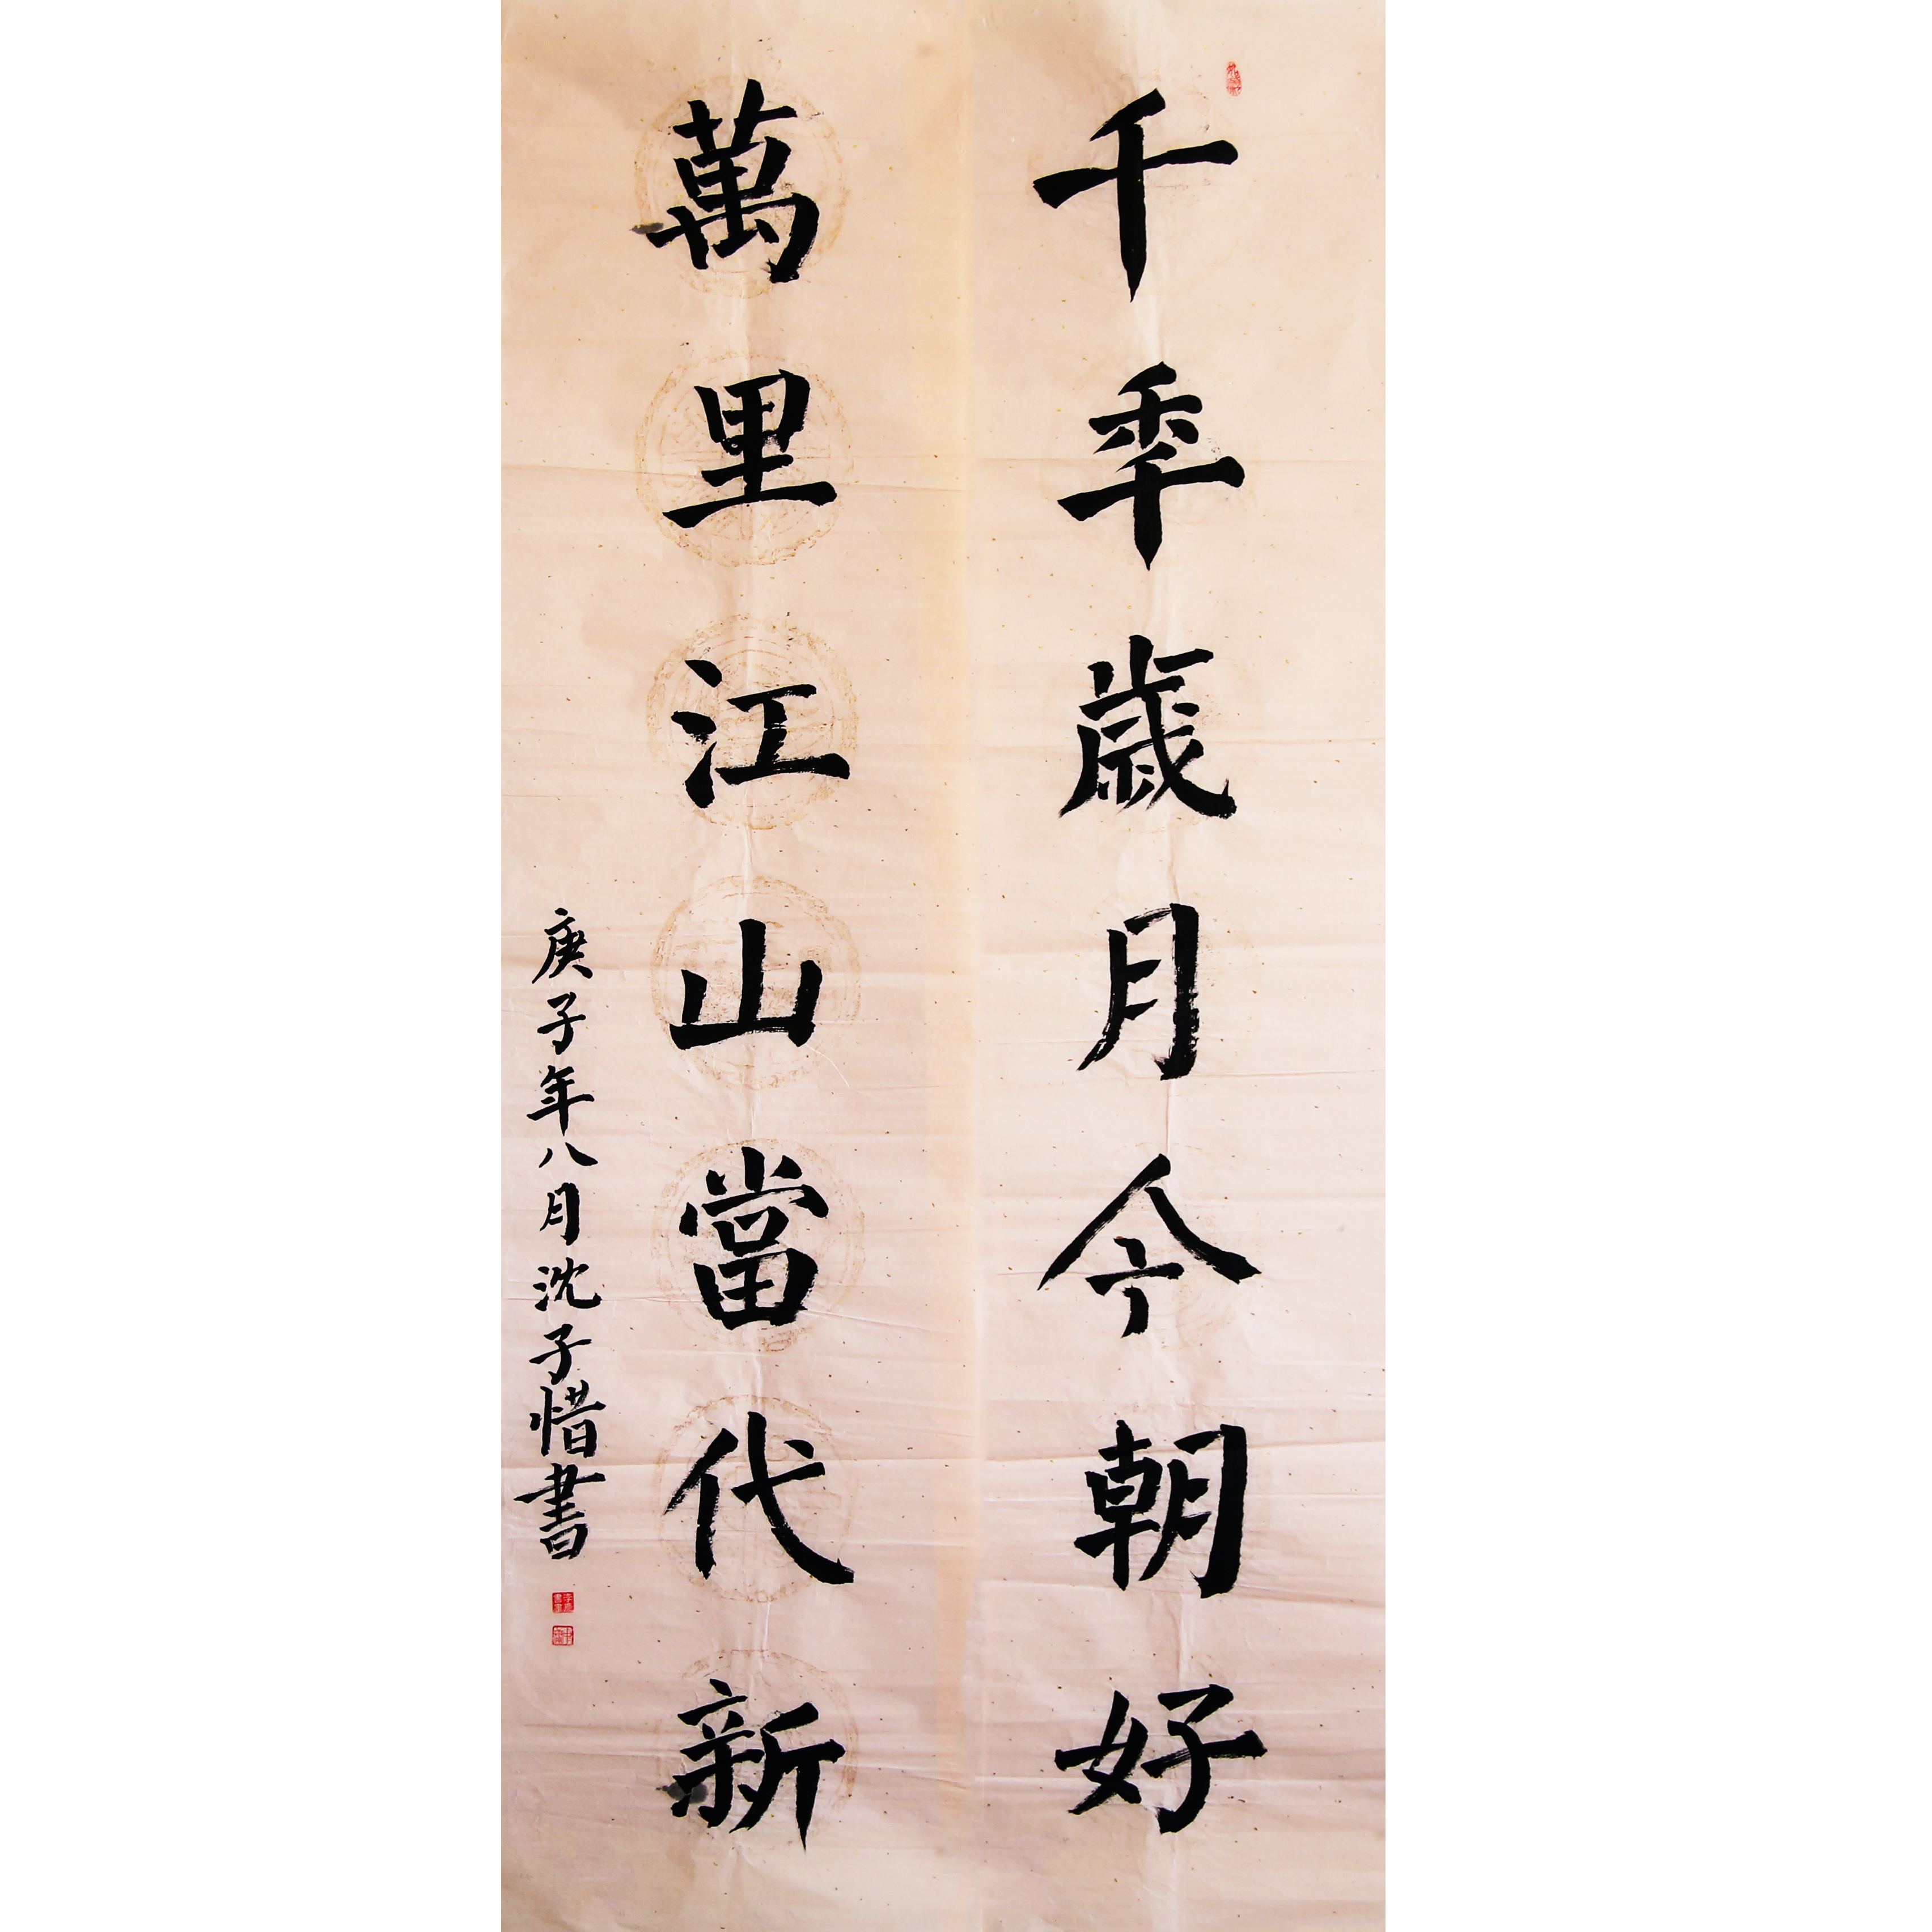 千秊歲月今朝好
萬里江山當代新
庚子年八月沈子惜書